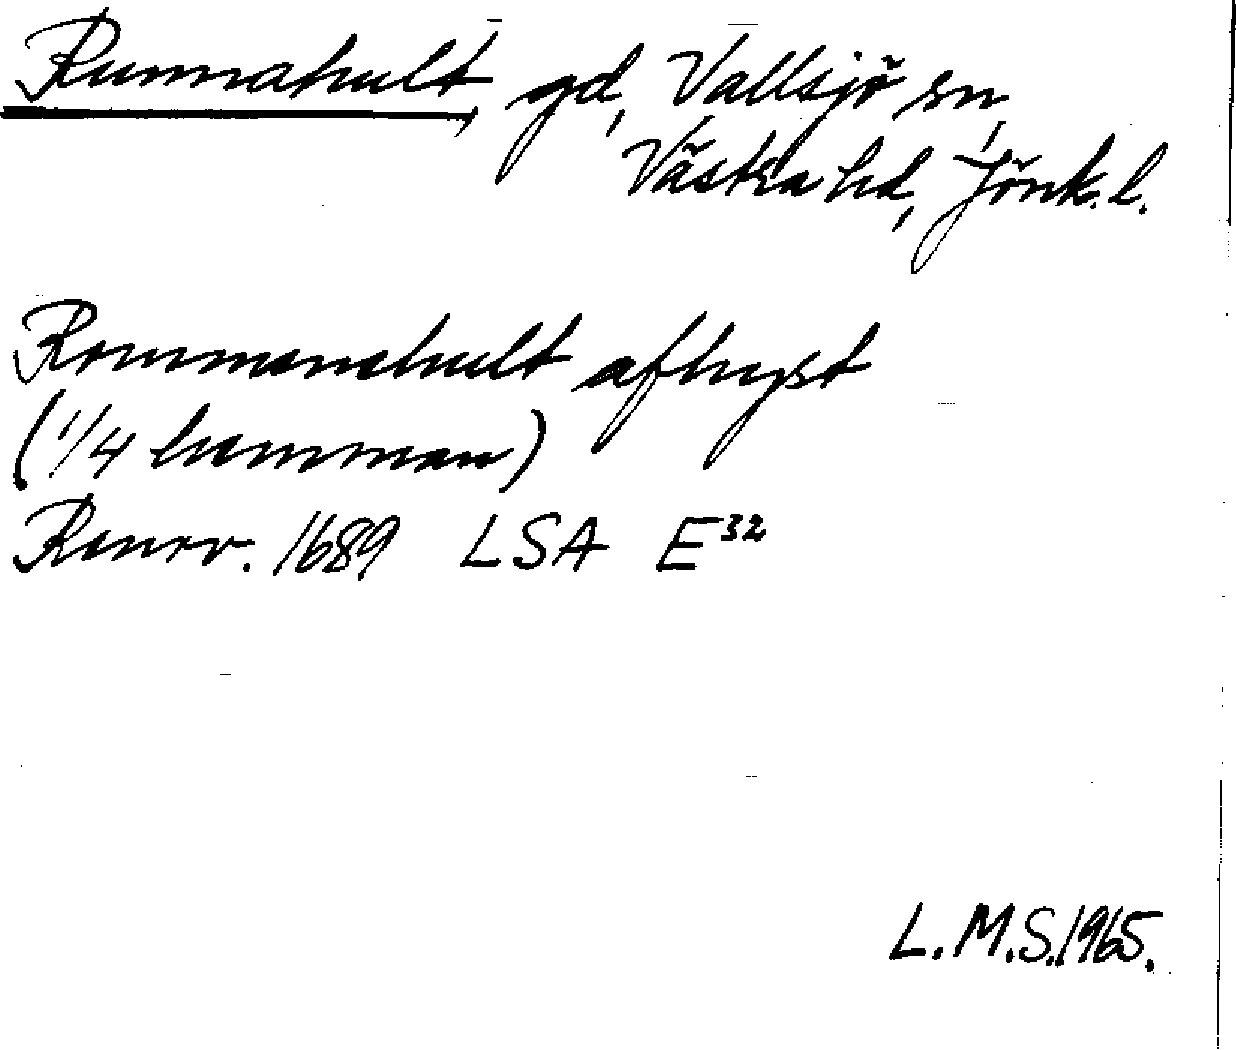 Runnahult, gd, Vallsjö sn,
Västra hd, Jönk. l.
Rommanahult afhyst
(1/4 hemman)
Ransv. 1689 LSA E32
L.M.S. 1965.